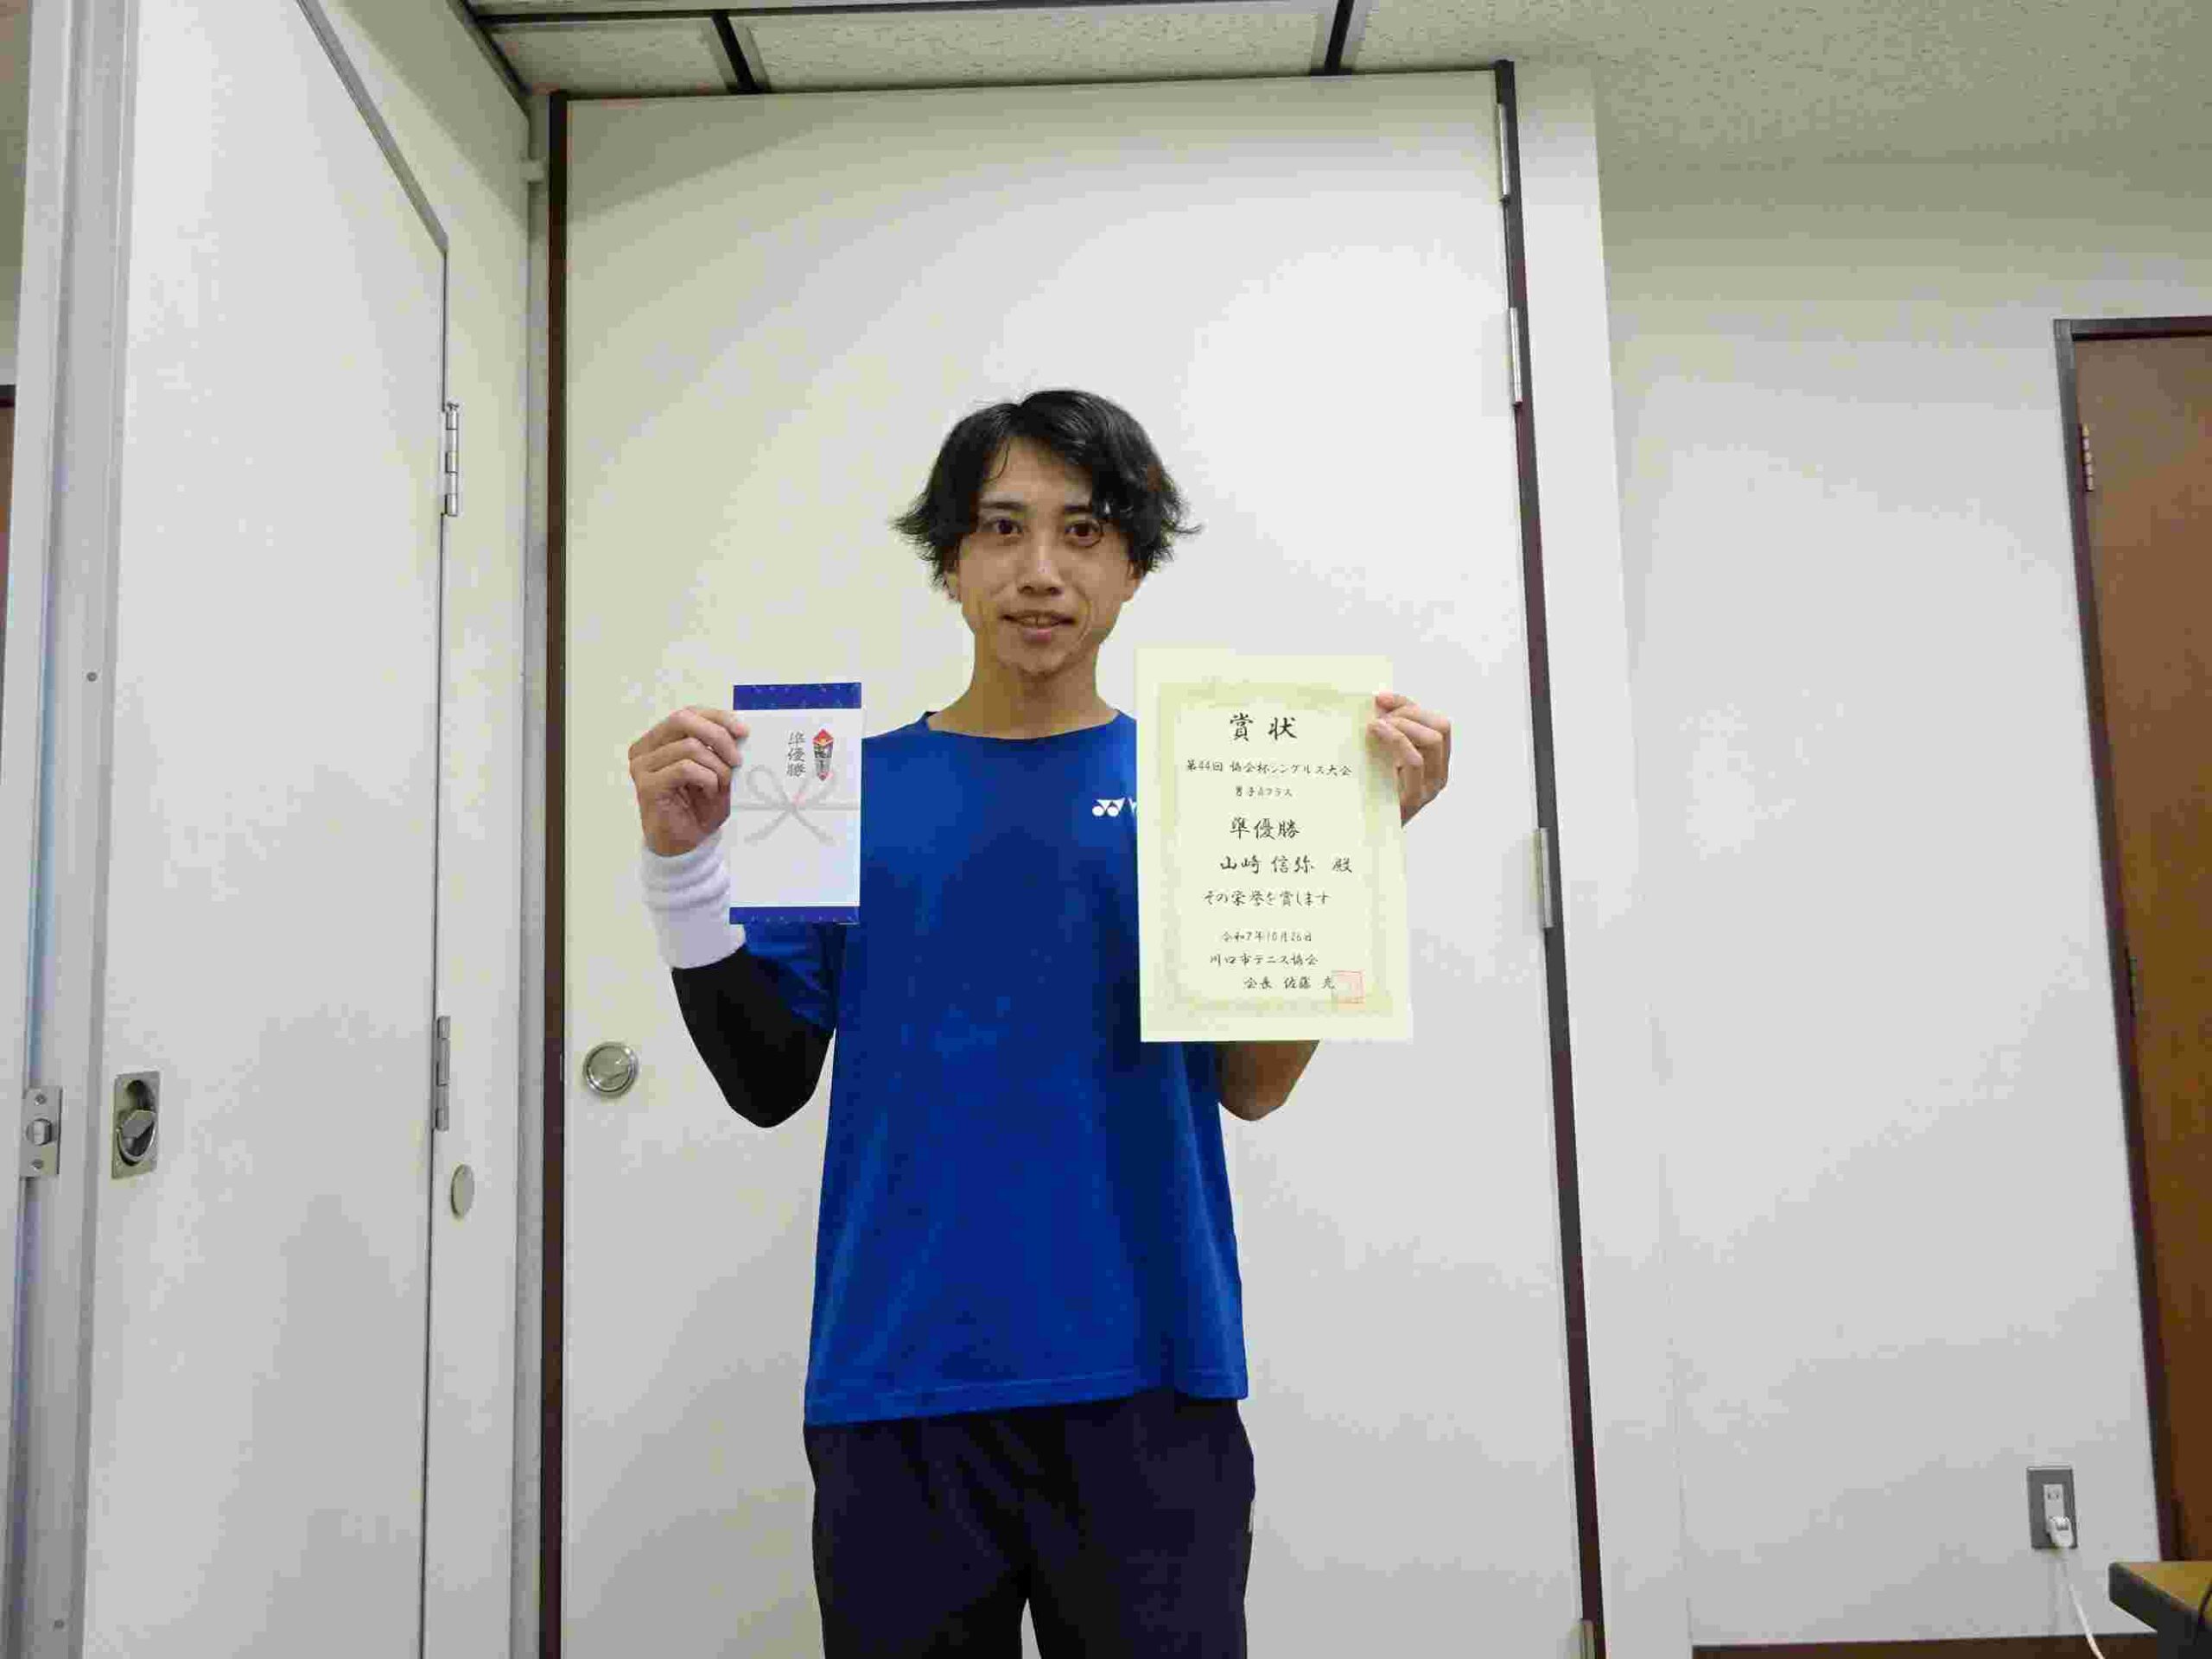 準優勝
賞状
第44回 協会杯シングルス大会
男子Aクラス
準優勝
山崎 信弥 殿
その栄誉を賞します
令和7年10月26日
川口市テニス協会
会長 佐藤 充